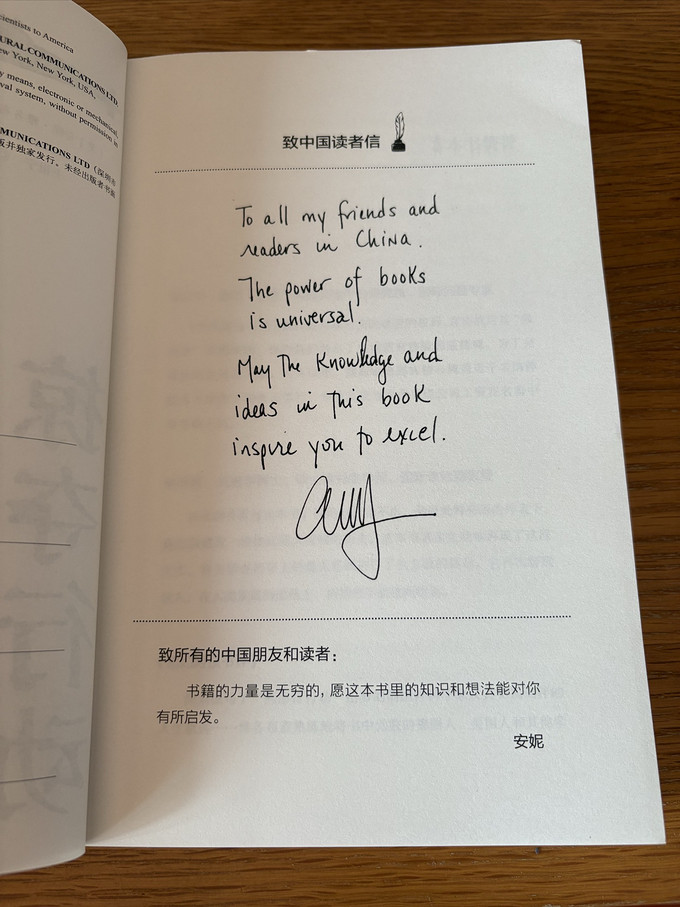 cientists to America
URAL COMMUNICATIONS LTD
ew York, New York, USA,
y means, electronic or mechanical,
val system, without permission in
MUNICATIONS LTD（深圳市
版并独家发行。未经出版者书面
致中国读者信
To all my friends and
readers in China.
The power of books
is universal.
May The Knowledge and
ideas in This book
inspire you to excel.
致所有的中国朋友和读者：
书籍的力量是无穷的，愿这本书里的知识和想法能对你
有所启发。
安妮